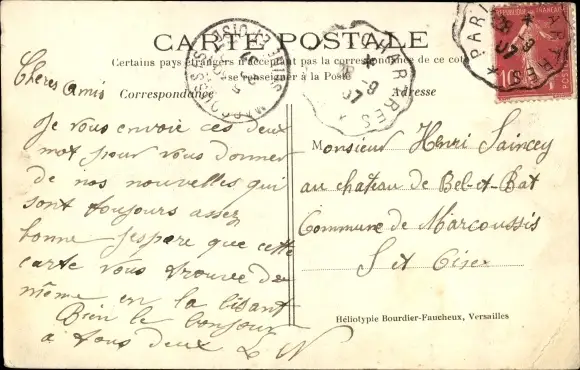 CARTE POSTALE
Certains pays étrangers n'acceptent pas la correspondance de ce coté
se renseigner à la Poste
Correspondance
Adresse
Cheres Amis
Je vous envoie ces deux
mot pour vous donner
de nos nouvelles qui
sont toujours assez
bonne j'espere que cette
carte vous trouve de
même en la lisant
Bien le bonjour
à tous deux L N
Monsieur Henri Saincey
au chateau de Bel-et-Bat
Commune de Marcoussis
S et Oise
Héliotypie Bourdier-Faucheux, Versailles
MARCOUSSIS
SEINE ET OISE
CHARTRES
PARIS